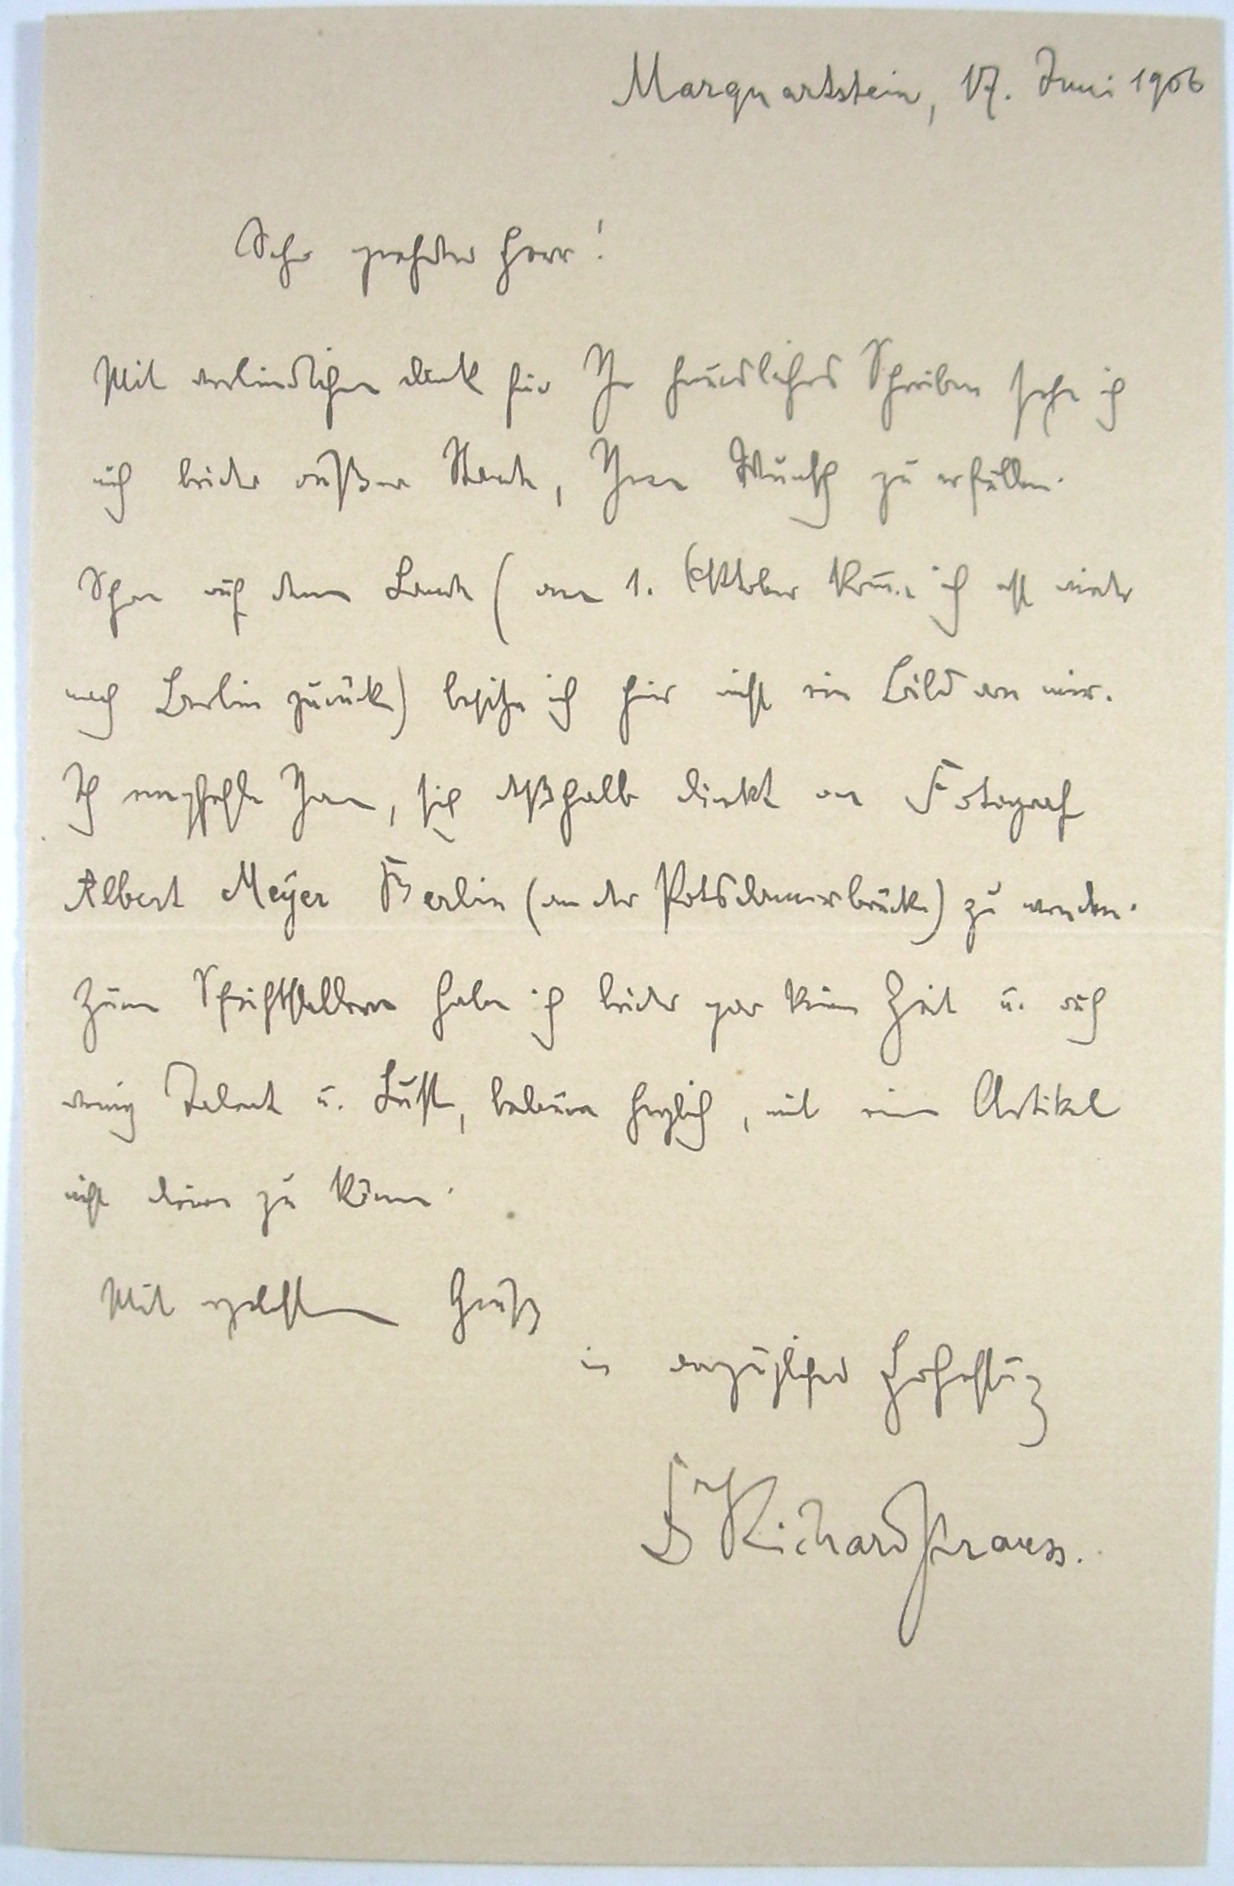 Marquartstein, 17. Juni 1906
Sehr geehrter Herr!
Mit verbindlichem Dank für Ihr freundliches Schreiben sehe ich
mich leider außer Stande, Ihren Wunsch zu erfüllen.
Schon auf dem Lande (am 1. Oktober komme ich erst wieder
nach Berlin zurück) besitze ich hier nicht ein Bild von mir.
Ich empfehle Ihnen, sich deßhalb direkt an Fotograf
Albert Meyer Berlin (an der Potsdamerbrücke) zu wenden.
Zum Schriftstellern habe ich leider gar keine Zeit u. auch
wenig Talent u. Lust, bedaure herzlich, mit einem Artikel
nicht dienen zu können.
Mit Gruß
in vorzüglicher Hochachtung
Dr Richard Strauss.